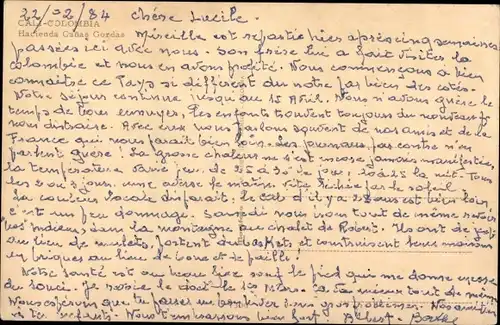 22/02/84 Chère Lucile.
CALI-COLOMBIA
Hacienda Cañas Gordas
Mireille est repartie hier après cinq semaines
passées ici avec nous. Son frère lui a fait visiter la
Colombie et nous en avons profité. Nous commençons à bien
connaître ce Pays si différent du notre par bien des cotés.
Notre séjour continue jusqu'au 15 Avril. Nous n'avons guère le
temps de nous ennuyer, les enfants trouvent toujours du nouveau pour
nous distraire. Avec eux nous parlons souvent de nos amis et de la
France qui nous parait bien loin. Les journaux, par contre n'en
parlent guère! La grosse chaleur ne s'est encore jamais manifestée,
la température varie peu. de 25 à 30 le jour, 10 à 15 la nuit. Tous
les 2 ou 3 jours, une averse le matin. vite séchée par le soleil
La couleur locale disparait. le Cali d'il y a 22 ans est bien loin,
c'est un peu dommage. Samedi nous avons tout de même retrouvé
les indiens dans la montagne au chalet de Robert. Ils ont de jolis
au lieu de mulets, portent du baskets et construisent leurs maisons
en briques au lieu de boue et de paille!
Notre santé va au beau fixe sauf le pied qui me donne encore
du souci. Je
Nous espérons que tu passes un bon hiver sans gros problèmes. Nos amitiés
à tes enfants. Nous t'embrassons bien fort. Albert - Berthe